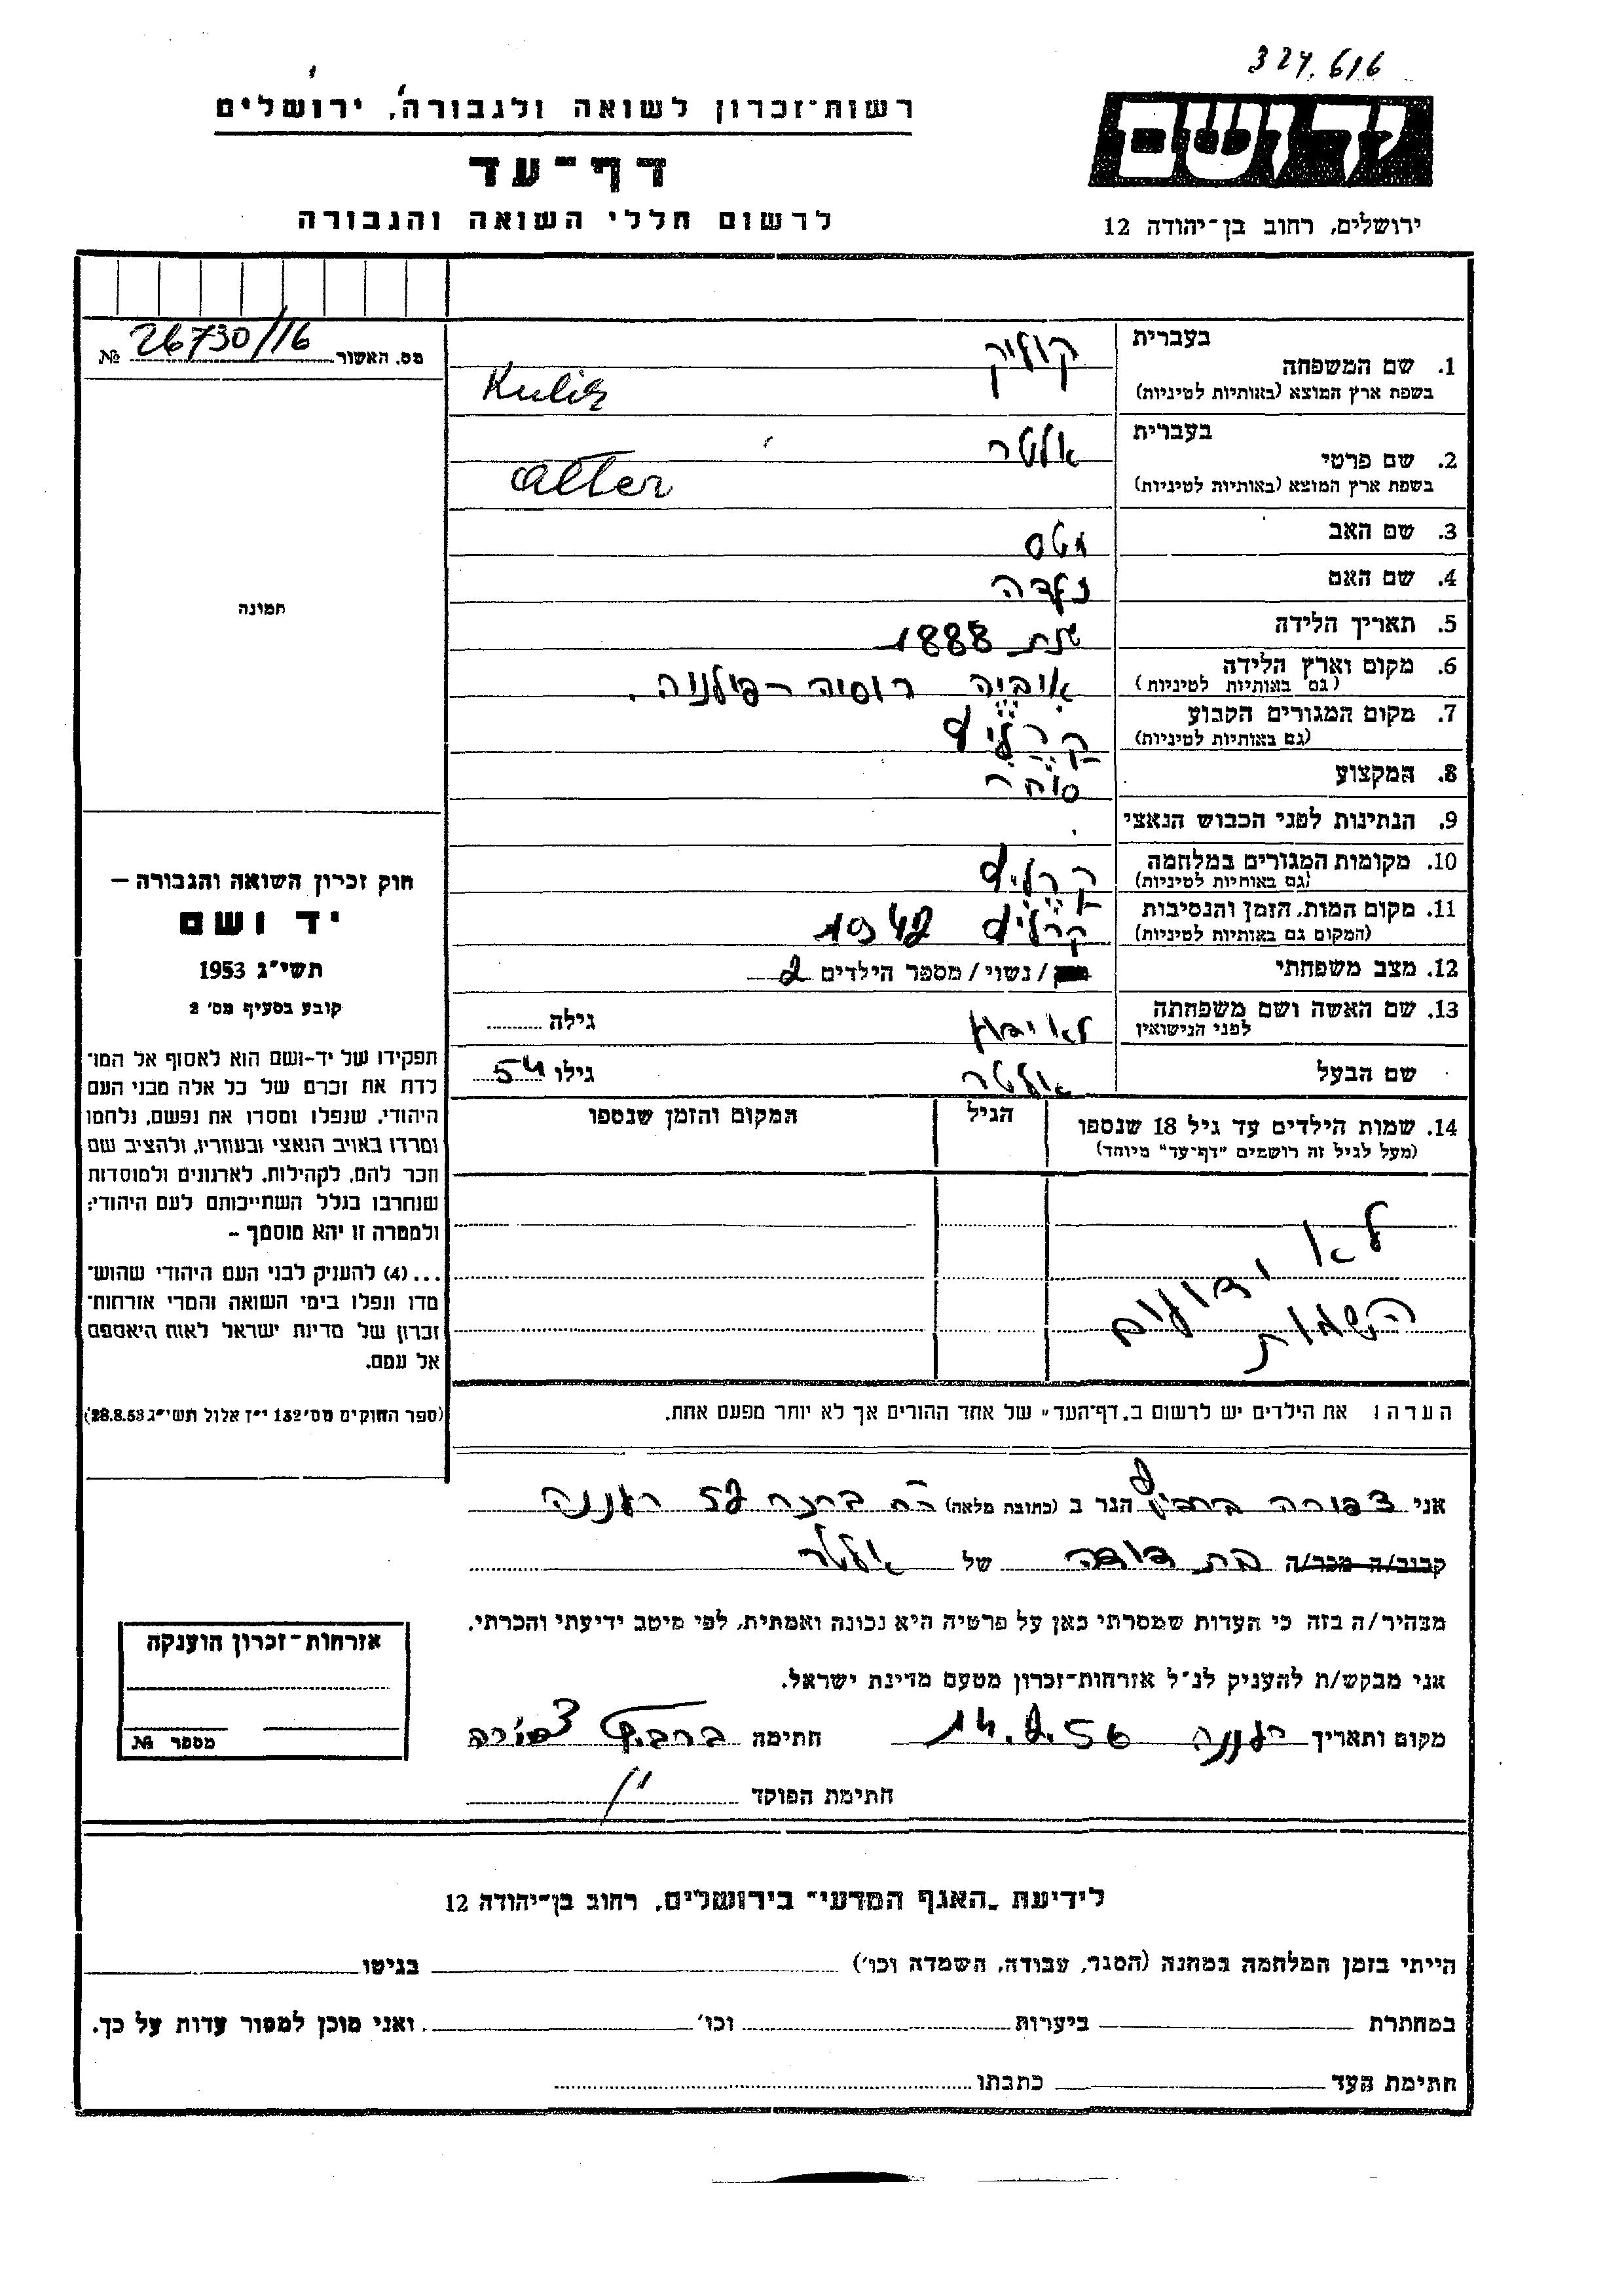 324.616
רשות־זכרון לשואה ולגבורה, ירושלים
דף־עד
לרשום חללי השואה והגבורה
יד ושם
ירושלים, רחוב בן־יהודה 12
מס. האשור 26730/16 №
תמונה
בעברית
1. שם המשפחה קוליק
בשפת ארץ המוצא (באותיות לטיניות) Kulik
בעברית
2. שם פרטי אלטר
בשפת ארץ המוצא (באותיות לטיניות) alter
3. שם האב
4. שם האם
5. תאריך הלידה שנת 1888
6. מקום וארץ הלידה רוסיה-פולניה.
(גם באותיות לטיניות)
7. מקום המגורים הקבוע
(גם באותיות לטיניות)
8. המקצוע סוחר
9. הנתינות לפני הכבוש הנאצי
10. מקומות המגורים במלחמה
(גם באותיות לטיניות)
11. מקום המות, הזמן והנסיבות 1942
(המקום גם באותיות לטיניות)
12. מצב משפחתי / נשוי / מספר הילדים 2
13. שם האשה ושם משפחתה לא ידוע גילה
לפני הנישואין
שם הבעל אלטר גילו 54
14. שמות הילדים עד גיל 18 שנספו הגיל המקום והזמן שנספו
(מעל לגיל זה רושמים "דף־עד" מיוחד)
לא ידועים
השמות
הערה: את הילדים יש לרשום ב"דף־העד" של אחד ההורים אך לא יותר מפעם אחת.
חוק זכרון השואה והגבורה –
יד ושם
תשי"ג 1953
קובע בסעיף מס' 2
תפקידו של יד-ושם הוא לאסוף אל המו־
לדת את זכרם של כל אלה מבני העם
היהודי, שנפלו ומסרו את נפשם, נלחמו
ומרדו באויב הנאצי ובעוזריו, ולהציב שם
וזכר להם, לקהילות, לארגונים ולמוסדות
שנחרבו בגלל השתייכותם לעם היהודי;
ולמטרה זו יהא מוסמך –
...(4) להעניק לבני העם היהודי שהוש־
מדו ונפלו בימי השואה והמרי אזרחות־
זכרון של מדינת ישראל לאות היאספם
אל עמם.
(ספר החוקים מס' 132 י"ז אלול תשי"ג 28.8.53)
אני צפורה הגר ב (כתובת מלאה) רח 52 רעננה
קרוב/ה מכר/ה בת דודה של אלטר
מצהיר/ה בזה כי העדות שמסרתי כאן על פרטיה היא נכונה ואמתית, לפי מיטב ידיעתי והכרתי.
אני מבקש/ת להעניק לנ"ל אזרחות־זכרון מטעם מדינת ישראל.
מקום ותאריך רעננה 14.2.56 חתימה צפורה
חתימת הפוקד
אזרחות־זכרון הוענקה
מספר №
לידיעת "האגף המדעי" בירושלים, רחוב בן־יהודה 12
הייתי בזמן המלחמה במחנה (הסגר, עבודה, השמדה וכו') בגיטו
במחתרת ביערות וכו' ואני מוכן למסור עדות על כך.
חתימת העד כתבתו